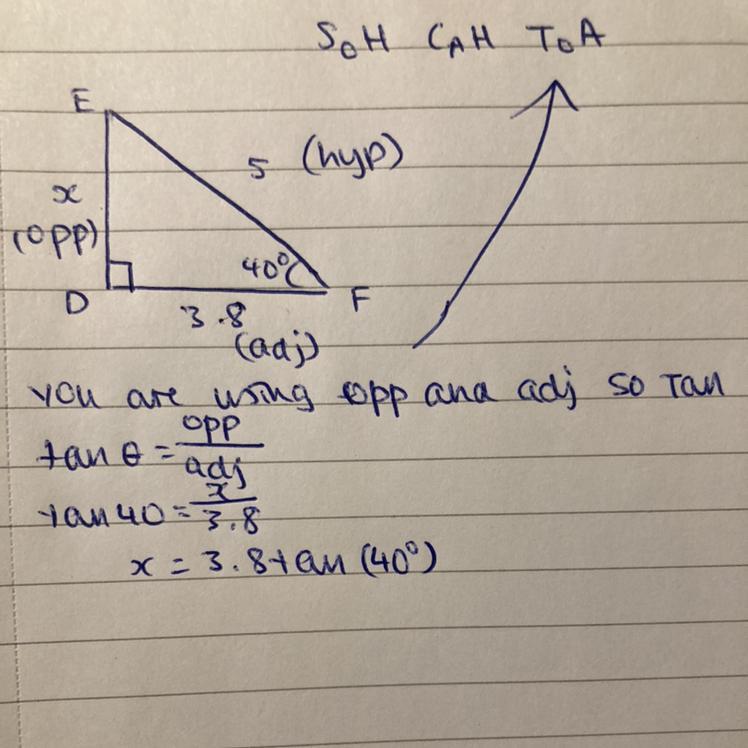 SOH CAH TOA
E
5 (hyp)
x
(opp)
40°
D
F
3.8
(adj)
you are using opp and adj so Tan
tan θ = opp/adj
tan 40 = x/3.8
x = 3.8 tan (40°)